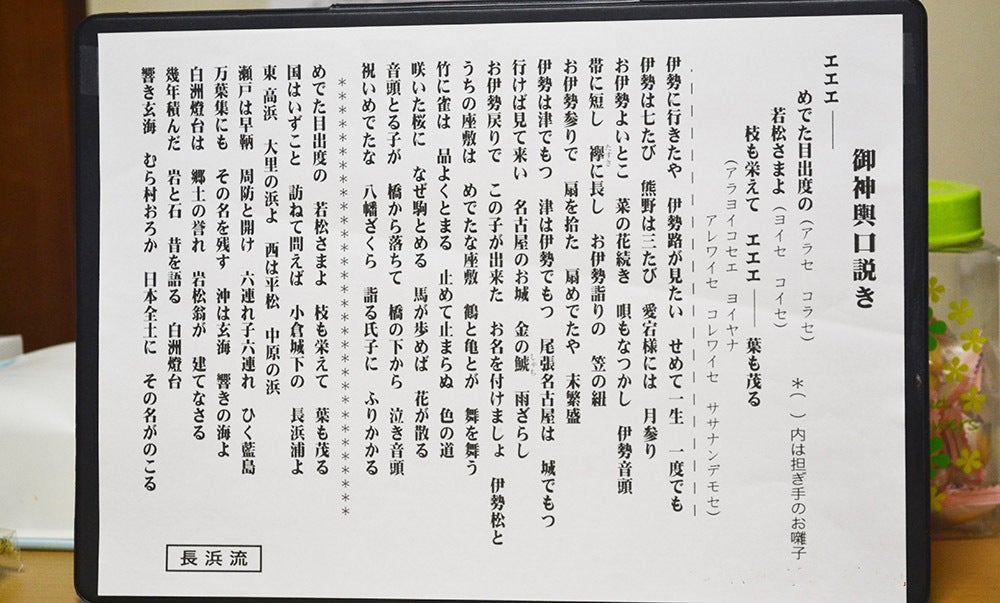 御神輿口説き
＊（　）内は担ぎ手のお囃子
エエエ ――
めでた目出度の（アラセ　コラセ）
若松さまよ（ヨイセ　コイセ）
枝も栄えて　エエエ ――　葉も茂る
（アラヨイコセエ　ヨイヤナ
アレワイセ　コレワイセ　ササナンデモセ）
伊勢に行きたや　伊勢路が見たい　せめて一生　一度でも
伊勢は七たび　熊野は三たび　愛宕様には　月参り
お伊勢よいとこ　菜の花続き　唄もなつかし　伊勢音頭
帯に短し　襷に長し　お伊勢詣りの　笠の紐
たすき
お伊勢参りで　扇を拾た　扇めでたや　末繁盛
伊勢は津でもつ　津は伊勢でもつ　尾張名古屋は　城でもつ
行けば見て来い　名古屋のお城　金の鯱　雨ざらし
しゃち
お伊勢戻りで　この子が出来た　お名を付けましょ　伊勢松と
うちの座敷は　めでたな座敷　鶴と亀とが　舞を舞う
竹に雀は　品よくとまる　止めて止まらぬ　色の道
咲いた桜に　なぜ駒とめる　馬が歩めば　花が散る
音頭とる子が　橋から落ちて　橋の下から　泣き音頭
祝いめでたな　八幡ざくら　詣る氏子に　ふりかかる
＊＊＊＊＊＊＊＊＊＊＊＊＊＊＊＊＊＊＊＊＊＊＊＊
めでた目出度の　若松さまよ　枝も栄えて　葉も茂る
国はいずこと　訪ねて問えば　小倉城下の　長浜浦よ
東　高浜　大里の浜よ　西は平松　中原の浜
瀬戸は早鞆　周防と開け　六連れ子六連れ　ひく藍島
万葉集にも　その名を残す　沖は玄海　響きの海よ
白洲燈台は　郷土の誉れ　岩松翁が　建てなさる
幾年積んだ　岩と石　昔を語る　白洲燈台
響き玄海　むら村おろか　日本全土に　その名がのこる
長浜流